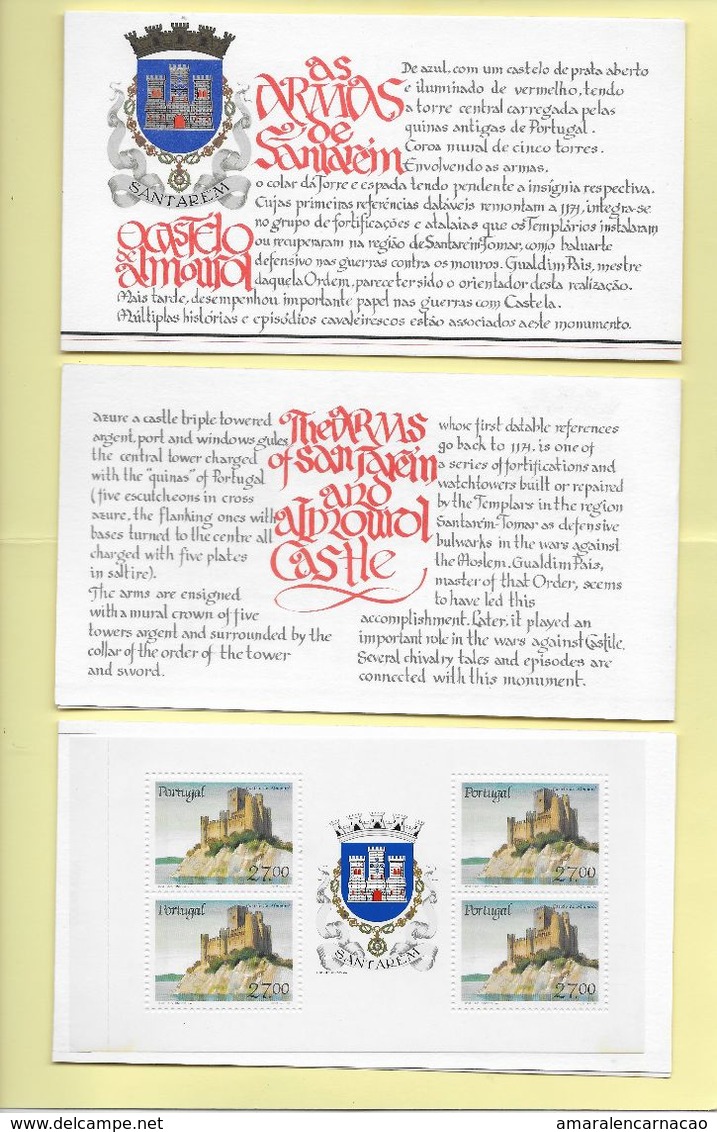 SANTARÉM
as
ARMAS
de
Santarém
De azul, com um castelo de prata aberto
e iluminado de vermelho, tendo
a torre central carregada pelas
quinas antigas de Portugal.
Coroa mural de cinco torres.
Envolvendo as armas,
o colar da Torre e espada tendo pendente a insígnia respectiva.
O CASTELO
de
almourol
Cujas primeiras referências datáveis remontam a 1171, integra-se
no grupo de fortificações e atalaias que os Templários instalaram
ou recuperaram na região de Santarém-Tomar, como baluarte
defensivo nas guerras contra os mouros. Gualdim Pais, mestre
daquela Ordem, parece ter sido o orientador desta realização.
Mais tarde, desempenhou importante papel nas guerras com Castela.
Múltiplas histórias e episódios cavaleirescos estão associados a este monumento.
azure a castle triple towered
argent, port and windows gules,
the central tower charged
with the "quinas" of Portugal
(five escutcheons in cross
azure, the flanking ones with
bases turned to the centre all
charged with five plates
in saltire).
The arms are ensigned
with a mural crown of five
towers argent and surrounded by the
collar of the order of the tower
and sword.
The ARMS
of SANTARÉM
and
almourol
Castle
whose first datable references
go back to 1171, is one of
a series of fortifications and
watchtowers built or repaired
by the Templars in the region
Santarém-Tomar as defensive
bulwarks in the wars against
the Moslem. Gualdim Pais,
master of that Order, seems
to have led this
accomplishment. Later, it played an
important role in the wars against Castile.
Several chivalry tales and episodes are
connected with this monument.
Portugal
27.00
Portugal
27.00
SANTARÉM
Portugal
27.00
Portugal
27.00
amaralencarnacao